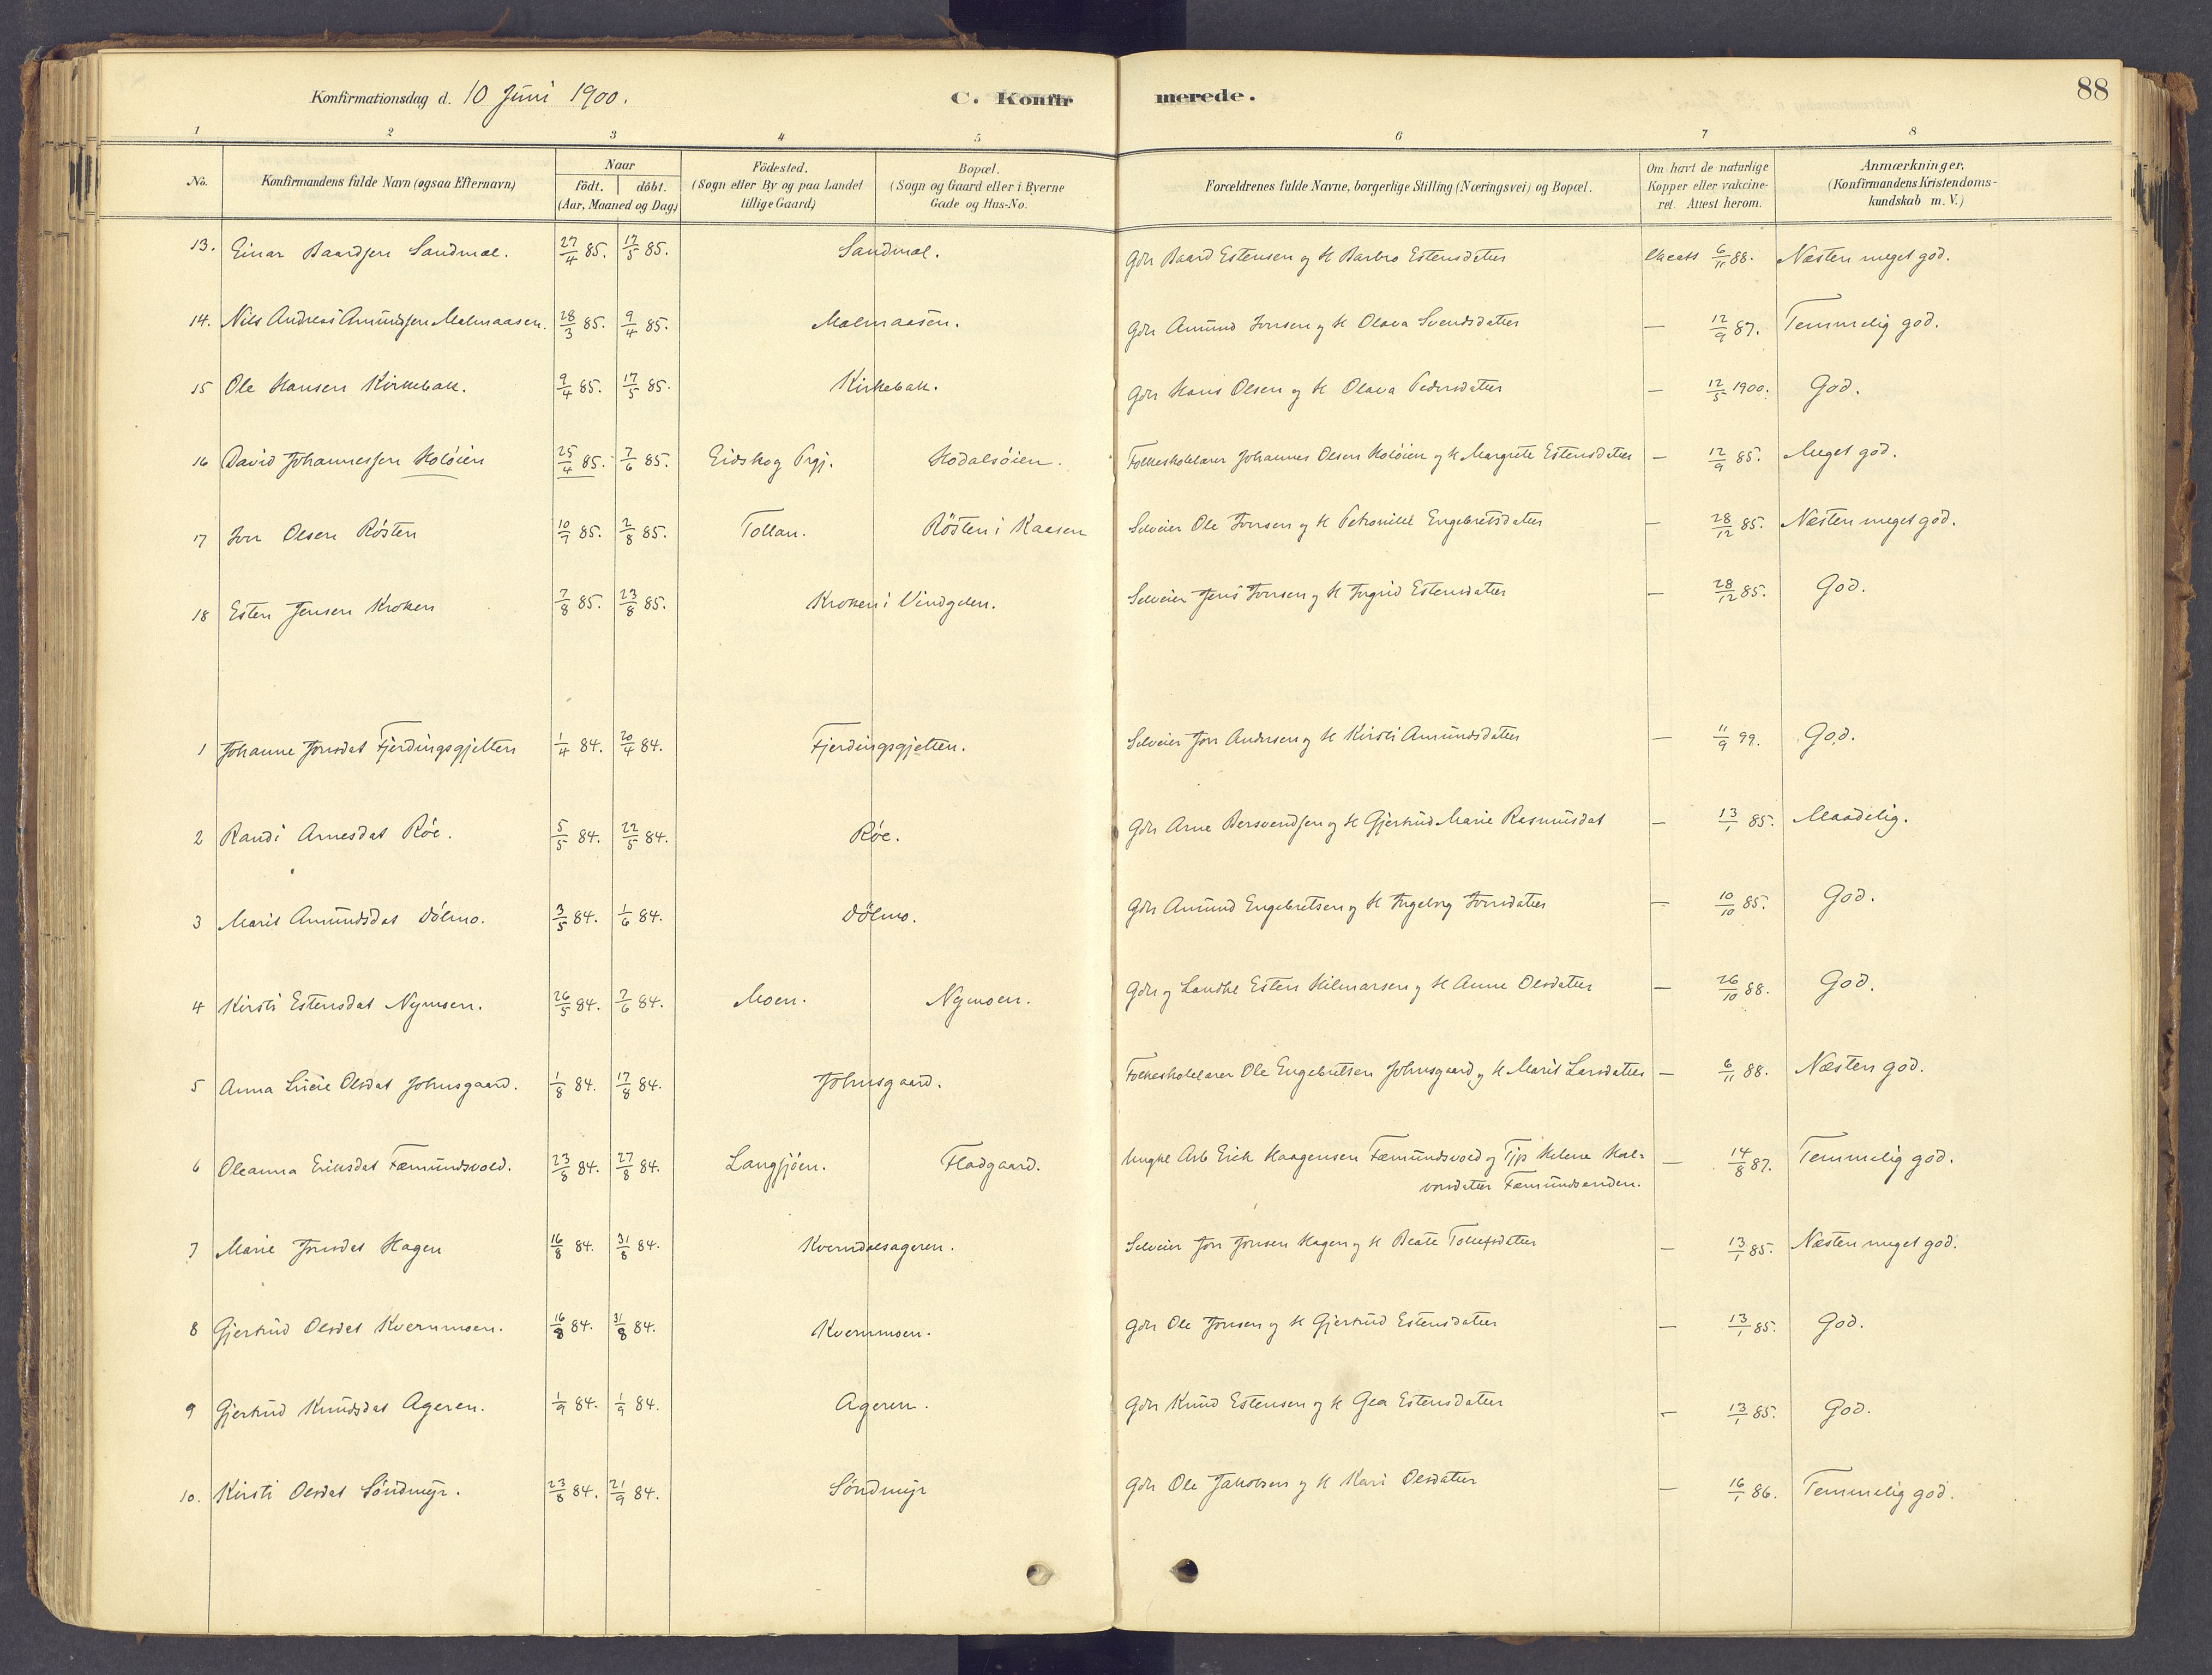 Konfirmationsdag d. 10 Juni 1900. C. Konfirmerede. 88
1 2 3 4 5 6 7 8
No. Konfirmandens fulde Navn (ogsaa Efternavn) Naar födt. döbt. (Aar, Maaned og Dag) Födested. (Sogn eller By og paa Landet tillige Gaard) Bopæl. (Sogn og Gaard eller i Byerne Gade og Hus-No. Forældrenes fulde Navne, borgerlige Stilling (Næringsvei) og Bopæl. Om havt de naturlige Kopper eller vakcineret. Attest herom. Anmærkninger. (Konfirmandens Kristendomskundskab m. V.)
13. Einar Baardsen Sandmæl. 27/4 85. 17/5 85. Sandmæl. Gdr Baard Estensen og H Barbro Estensdatter 6/11 88. Næsten meget god.
14. Nils Andreas Amundsen Malmaasen. 28/3 85. 9/4 85. Malmaasen. Gdr Amund Jonsen og H Olava Svendsdatter — 12/9 87. Temmelig god.
15 Ole Hansen Kirkebak. 9/4 85. 17/5 85. Kirkebak. Gdr Hans Olsen og H Olava Pedersdatter — 12/5 1900. God.
16 David Johannessen Holöien 25/4 85. 7/6 85. Eidskog Prgj. Hodalsöien. Folkeskolelærer Johannes Olsen Holöien og H Margrete Estensdatter — 12/9 85. Meget god.
17 Jon Olsen Rösten 10/7 85. 2/8 85. Tollan. Rösten i Kaasen Selveier Ole Jonsen og H Petronille Engebretsdatter — 28/12 85. Næsten meget god.
18 Esten Jensen Kroken 7/8 85. 23/8 85. Kroken i Vindgelen. Selveier Jens Jonsen og H Ingrid Estensdatter — 28/12 85. God.
1 Johanne Jonsdat Fjerdingsgjelten 1/4 84. 20/4 84. Fjerdingsgjelten. Selveier Jon Andersen og H Kirsti Amundsdatter — 11/9 99. God.
2 Randi Arnesdat Röe. 5/5 84. 22/5 84. Röe. Gdr Arne Bersvendsen og H Gjertrud Marie Rasmusdat — 13/1 85. Maadelig.
3 Marit Amundsdat Dölmo. 3/5 84. 1/6 84. Dölmo. Gdr Amund Engebretsen og H Ingeborg Jonsdatter — 10/10 85. God.
4 Kirsti Estensdat Nymoen. 26/5 84. 7/6 84. Moen. Nymoen. Gdr og Landhl Esten Hilmarsen og H Anne Olsdatter — 26/10 88. God.
5 Anna Lucie Olsdat Johnsgaard. 1/8 84. 17/8 84. Johnsgaard. Folkeskolelærer Ole Engebretsen Johnsgaard og H Marit Larsdatter — 6/11 88. Næsten god.
6 Oleanna Eriksdat Fæmundsvold. 23/8 84. 27/8 84. Langsjöen. Flodgaard. Ungkl Arb Erik Haagensen Fæmundsvold og Tjp Helene Hal-
vorsdatter Fæmundsenden. — 14/8 87. Temmelig god.
7 Marie Jonsdat Hagen 16/8 84. 31/8 84. Kverndalsageren. Selveier Jon Jonsen Hagen og H Beate Tollefsdatter — 13/1 85. Næsten meget god.
8 Gjertrud Olsdat Kvernmoen. 16/8 84. 31/8 84. Kvernmoen. Gdr Ole Jonsen og H Gjertrud Estensdatter — 13/1 85. God.
9 Gjertrud Knudsdat Ageren. 1/9 84. 1/9 84. Ageren. Gdr Knud Estensen og H Gea Estensdatter — 13/1 85. God.
10. Kirsti Olsdat Söndmyr. 23/8 84. 21/9 84. Söndmyr Gdr Ole Jakobsen og H Kari Olsdatter — 16/1 86. Temmelig god.